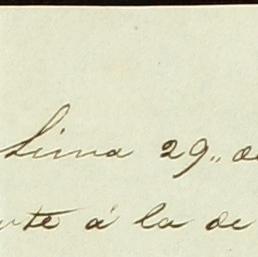 Lima 29„ de
rte á la de